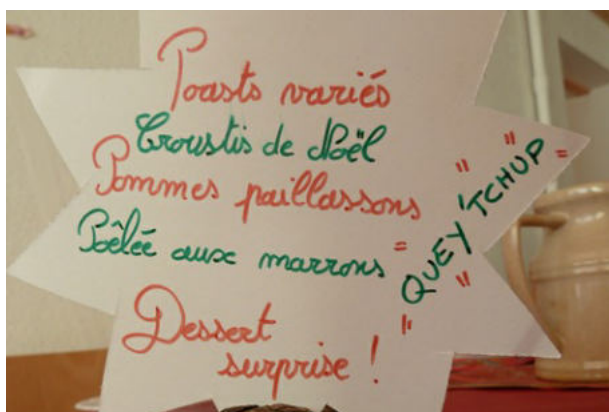 Toasts variés
Croustis de Noël
Pommes paillassons
Poêlée aux marrons
Dessert
surprise !
QUEY'TCHUP